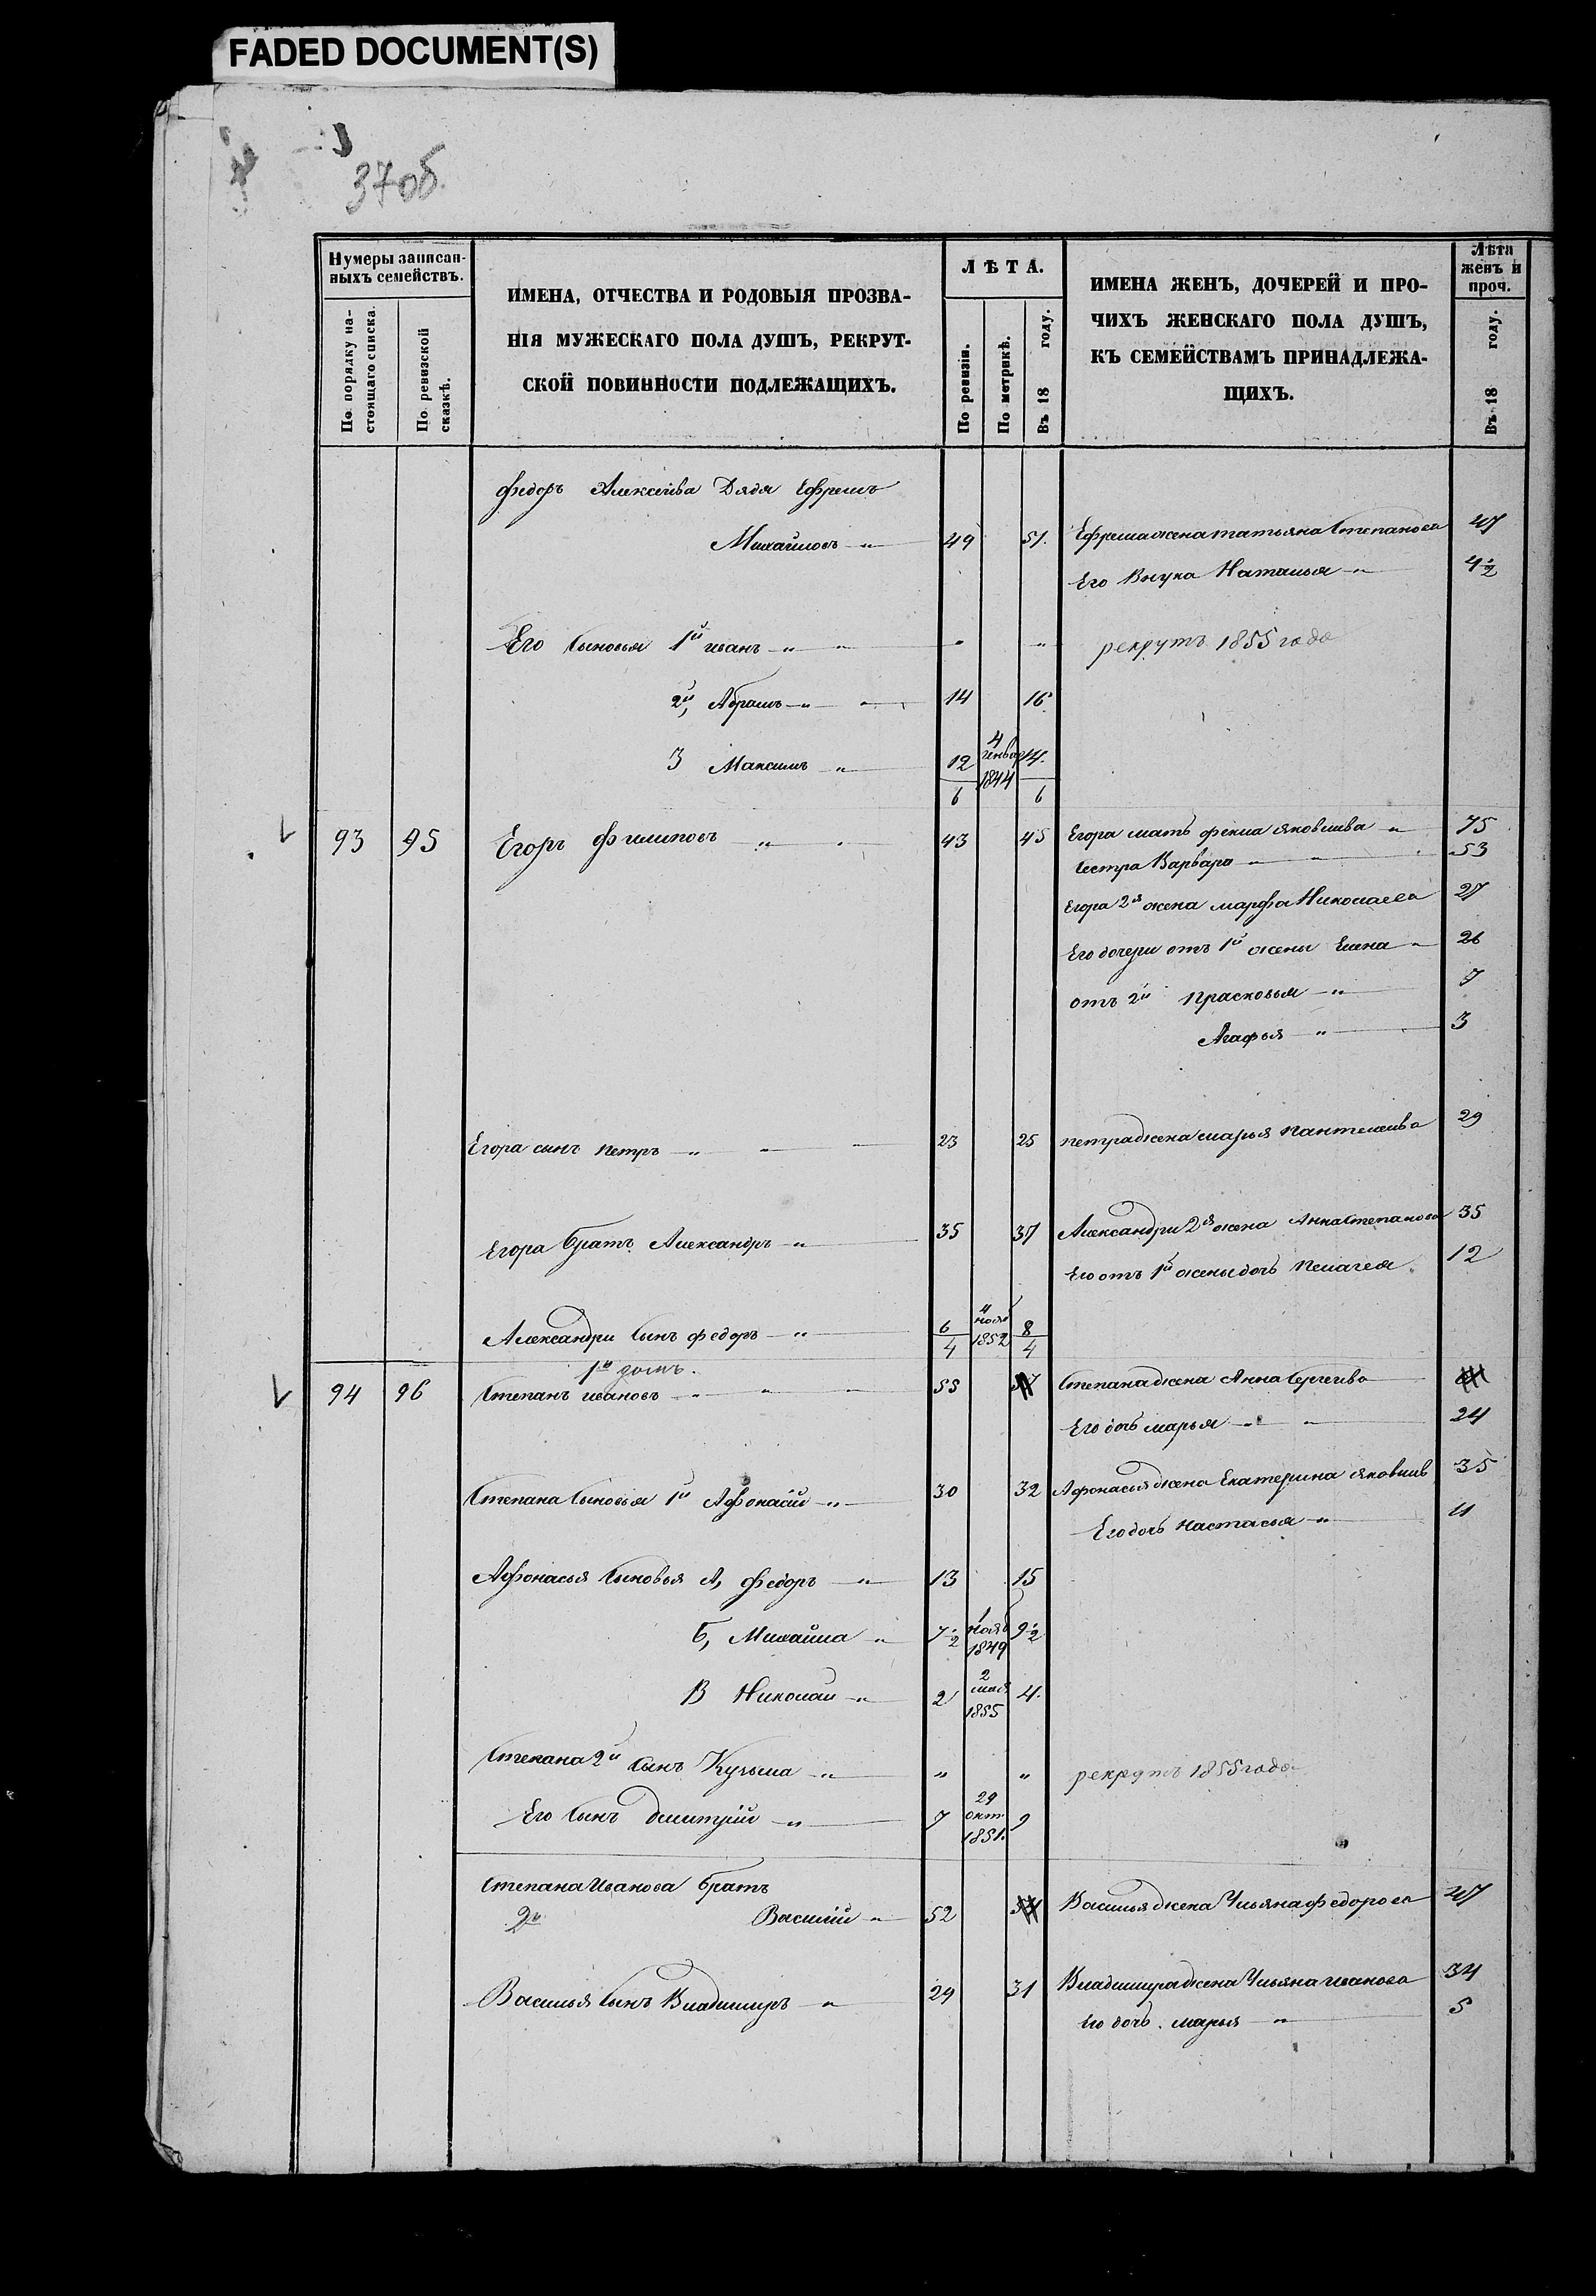 FADED DOCUMENT(S)
37об.
Нумеры записан-
ныхъ семействъ.
По порядку на-
стоящаго списка.
По ревизской
сказкѣ.
ИМЕНА, ОТЧЕСТВА И РОДОВЫЯ ПРОЗВА-
НІЯ МУЖЕСКАГО ПОЛА ДУШЪ, РЕКРУТ-
СКОЙ ПОВИННОСТИ ПОДЛЕЖАЩИХЪ.
ЛѢТА.
По ревизіи.
По метрикѣ.
Въ 18 году.
ИМЕНА ЖЕНЪ, ДОЧЕРЕЙ И ПРО-
ЧИХЪ ЖЕНСКАГО ПОЛА ДУШЪ,
КЪ СЕМЕЙСТВАМЪ ПРИНАДЛЕЖА-
ЩИХЪ.
Лѣта
женъ и
проч.
Въ 18 году.
Федоръ Алексеева Дядя Ефремъ
Михайловъ „ 49 51. Ефрема жена татьяна Степанова 47
Его Внука Наталья „ 4½
Его Сыновья 1й иванъ „ „ „ „ рекрутъ 1855 года
2й, Абрамъ „ „ 14 16.
3 Максимъ „ 12 4 генвар 1844 14.
6 6
93 95 Егоръ филиповъ „ „ 43 45 Егора мать фекла яковлева „ 75
Сестра Варвара „ „ 53
Егора 2я жена марфа Николаева 27
Его дочери отъ 1й жены Елена „ 26
отъ 2й Прасковья „ 7
Агафья „ 3
Егора сынъ петръ „ „ 23 25 петра жена марья Пантелеева 29
Егора братъ Александръ „ 35 37 Александры 2я жена Анна Степанова 35
Его отъ 1й жены дочь Пелагея 12
Александры Сынъ федоръ „ 6 4 нояб 1852 8
4 4
1й домъ.
94 96 Степанъ ивановъ „ „ „ 55 57 Степана жена Анна Сергеева
Его дочь марья „ „ 24
Степана Сыновья 1й Афонасій „ 30 32 Афонасья жена Екатерина яковлев 35
Его дочь настасья „ 11
Афонасья Сыновья А, федоръ „ 13 15
Б, Михайла „ 7½ 1 нояб 1849 9½
В Николай „ 2 2 мая 1855 4.
Степана 2й Сынъ Кузьма „ „ „ рекрутъ 1855 года
Его Сынъ дмитрій „ 7 29 окт. 1851. 9
Степана Иванова братъ
2й Василій „ 52 54 Василья жена Ульяна федорова 47
Василья Сынъ Владимиръ „ 29 31 Владимира жена Ульяна иванова 34
Его дочь. марья „ 5